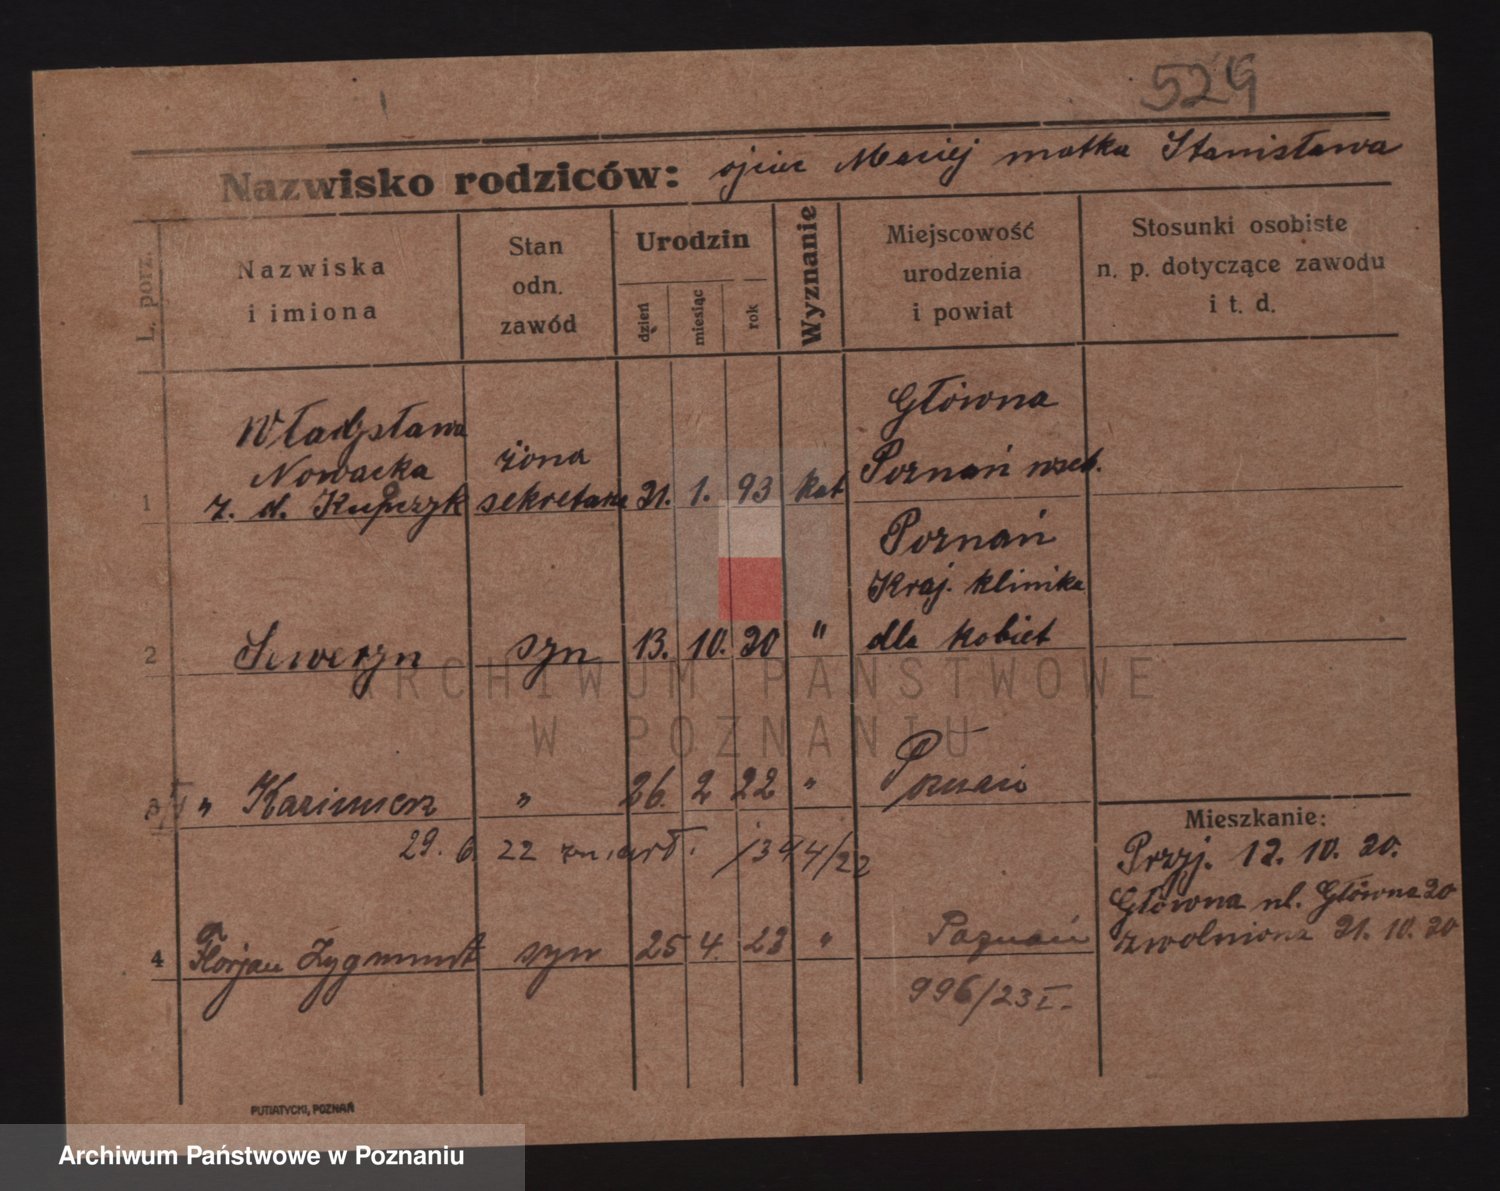 529
Nazwisko rodziców: ojciec Maciej matka Stanisława
L. porz.
Nazwiska
i imiona
Stan
odn.
zawód
Urodzin
dzień
miesiąc
rok
Wyznanie
Miejscowość
urodzenia
i powiat
Stosunki osobiste
n. p. dotyczące zawodu
i t. d.
1
Władysława
Nowacka
z. d. Kupczyk
żona
sekretarza
21. 1. 93
kat
Główna
Poznań wsch.
2
Seweryn
syn
13. 10. 20
"
Poznań
Kraj. klinika
dla kobiet
3
" Kazimierz
"
26. 2 22
"
Poznań
29. 6 22 zmarł. 1344/22
4
Florjan Zygmunt
syn
25 4. 23
"
Poznań
996/23 I.
Mieszkanie:
Przyj. 12. 10. 20.
Główna ul. Główna 20
zwolniona 21. 10. 20
PUTIATYCKI, POZNAŃ
ARCHIWUM PAŃSTWOWE
W POZNANIU
Archiwum Państwowe w Poznaniu